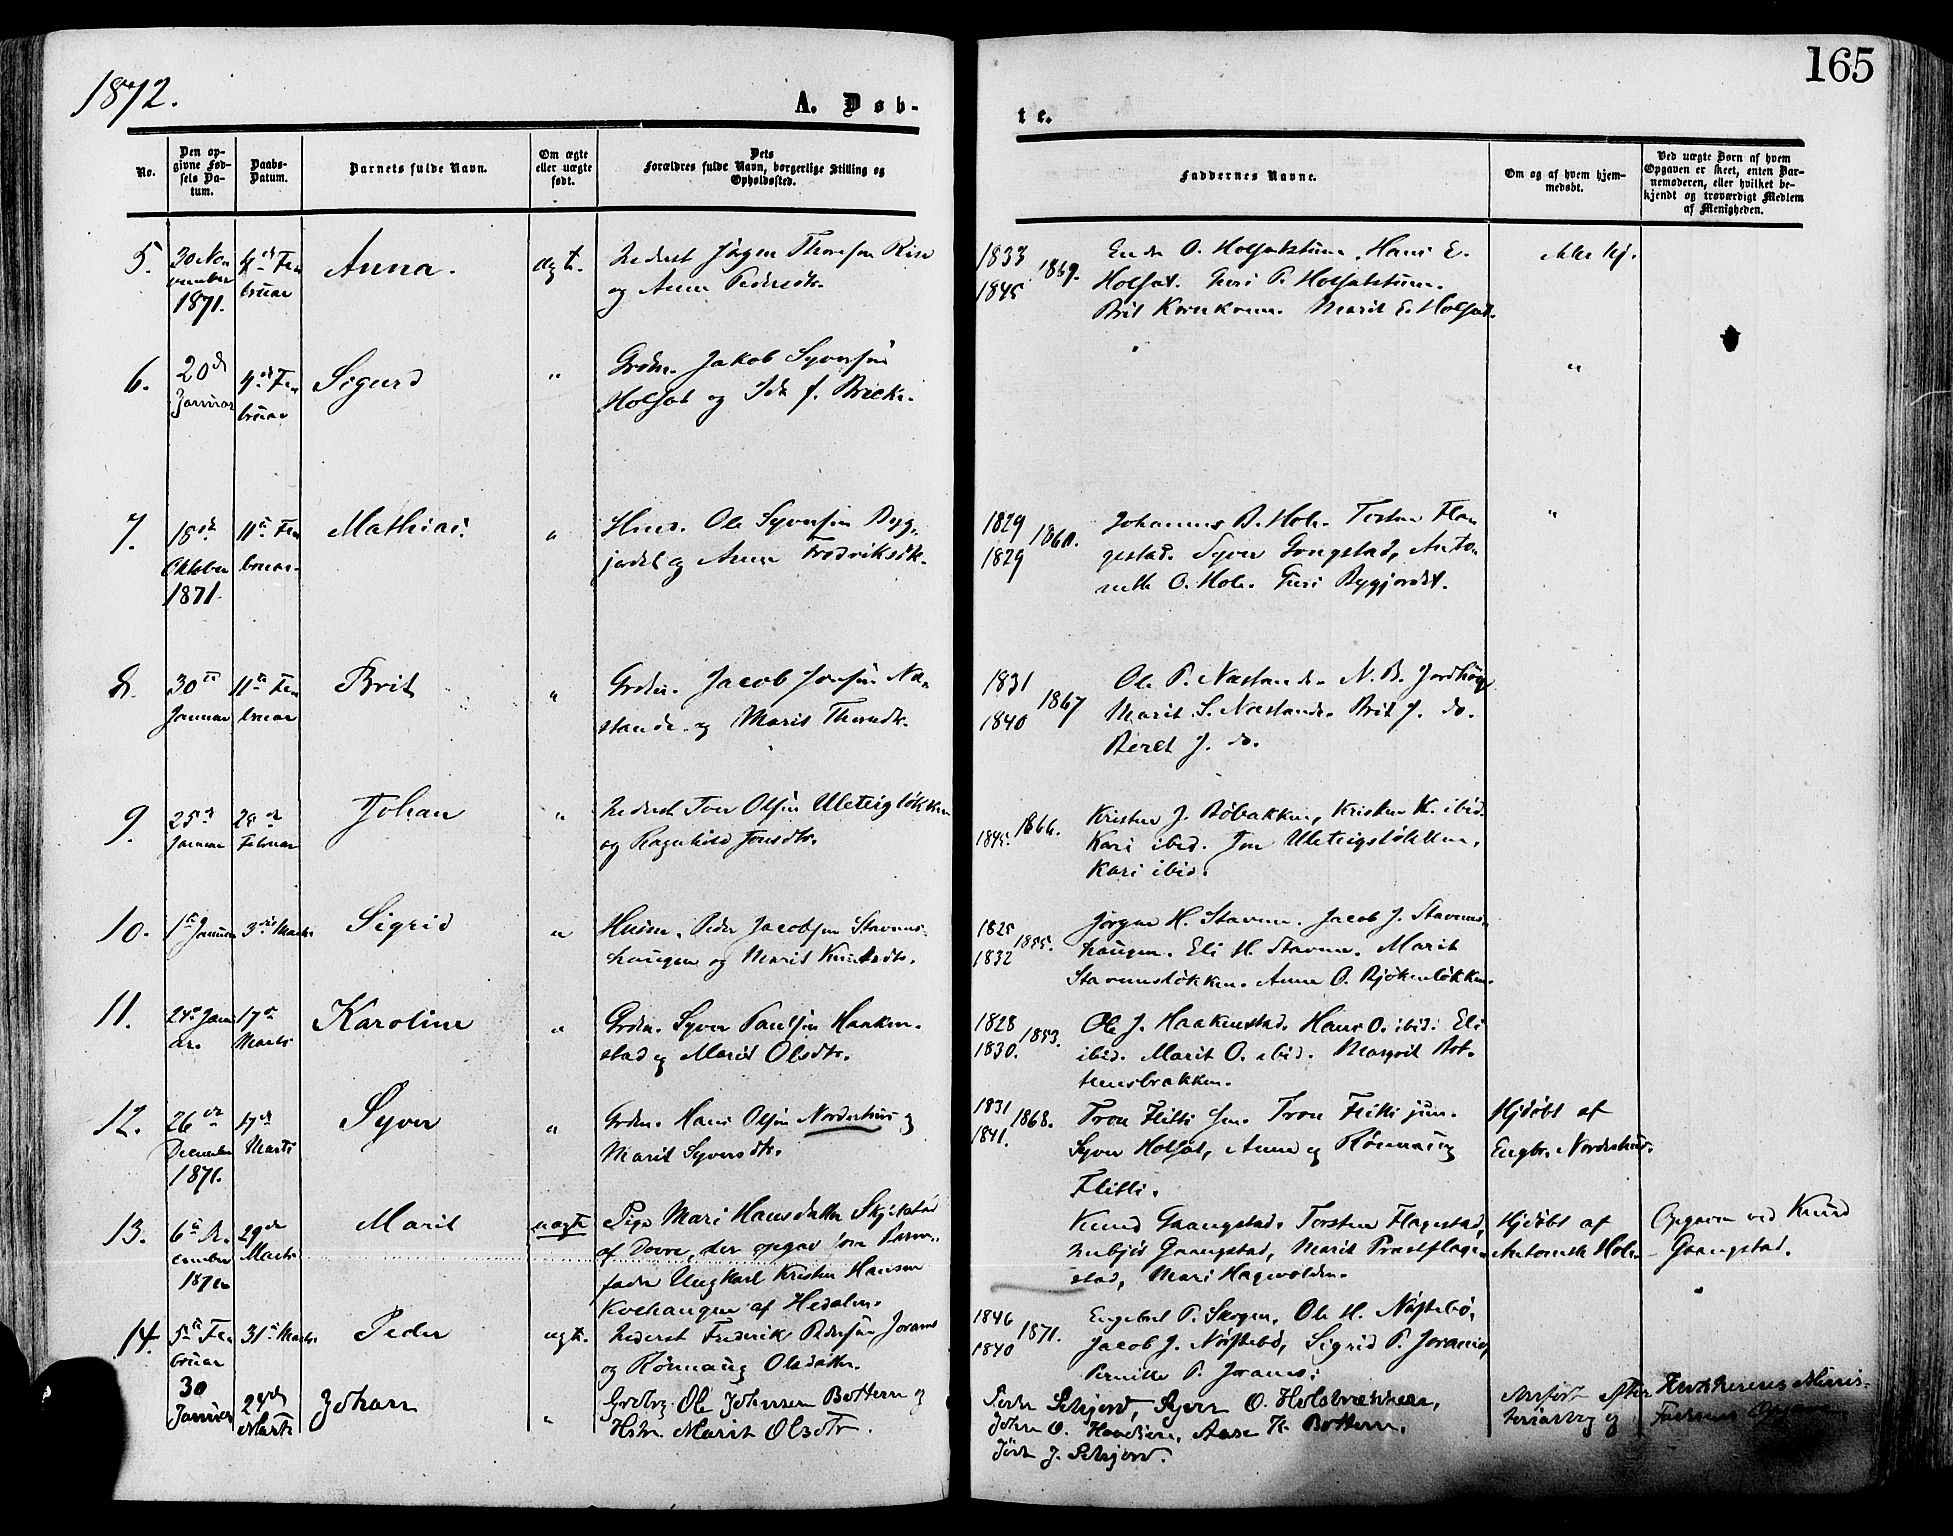 1872.
165
A. Døb-
te.
No.
Den op-
givne Fød-
sels Da-
tum.
Daabs-
Datum.
Barnets fulde Navn.
Om ægte
eller uægte
født.
Dets
Forældres fulde Navn, borgerlige Stilling og
Opholdssted.
Faddernes Navne.
Om og af hvem hjem-
medøbt.
Ved uægte Børn af hvem
Opgaven er skeet, enten Bar-
nemoderen, eller hvilket be-
kjendt og troværdigt Medlem
af Menigheden.
5.
30 No-
vember
1871.
4de Fe-
bruar
Anna.
ægt.
Inderst Jögen Thoresen Rise
og Anne Pedersdtr.
1833
1845
1869.
Ende O. Holsetstuen. Hans E.
Holset. Guri P. Holsetstuen.
Brit Kvernkvern. Marit E. Holset.
ikke hj.
6.
20de
Januar
4de Fe-
bruar
Sigurd
"
Grdm. Jakob Syversen
Holset og Ida f. Brick.
"
7.
18de
Oktober
1871
11te Fe-
bruar.
Mathias
"
Husm. Ole Syversen Byg-
jordet og Anne Fredriksdtr.
1829
1829
1860.
Johannes B. Hole. Torsten Fla-
gestad. Syver Gongstad, Anto-
nette O. Hole. Guri Bygjordet.
"
8.
30te
Januar
11te Fe-
bruar
Brit
"
Grdm. Jacob Jonsen Næ-
stande og Marit Thorsdtr.
1831
1840
1867
Ole P. Næstande. N. B. Jordhöy
Marit S. Næstande. Brit J. do.
Beret J. do.
9.
25de
Januar
28de
Februar
Johan
"
Inderst Tor Olsen Uleteigløkken
og Ragnhild Jonsdtr.
1845.
1866.
Kristen J. Bøbakken, Kristen K. ibid.
Kari ibid. Jon Uleteigsløkken,
Kari ibid.
10.
1ste Januar
3die Marts
Sigrid
"
Husm. Peder Jacobsen Stavens-
haugen og Marit Knutsdtr.
1825
1832
1855.
Jörgen H. Stavem. Jacob J. Stavens-
haugen. Eli H. Stavem. Marit
Stavensløkken. Anne O. Bjökenløkken.
11.
24de Janu-
ar.
17de
Marts
Karoline
"
Grdm. Syver Paulsen Haaken-
stad og Marit Olsdtr.
1828
1830.
1853.
Ole J. Haakenstad. Hans O. ibid. Eli
ibid. Marit O. ibid. Margrit Bot-
tensbrakken.
12.
26de
December
1871.
17de
Marts
Syver
"
Grdm. Hans Olsen Nordestuve og
Marit Syversdtr.
1831
1841.
1868.
Tron Flitti sen. Tron Flitti jun.
Syver Holset, Anne og Rönnaug
Flitti.
Hjdøbt af
Engbr. Nordestuve.
13.
6te De-
cember
1871
29de
Marts
Marit
uægte
Pige Mari Hansdatter Skjelstad
af Dovre, der opgav som Barne-
fader Ungkarl Kristen Hansen
Kvehaugen af Hedalen.
Knud Gaangstad. Torsten Flagestad,
Imbjör Gaangstad, Marit Præstflage-
stad, Mari Hagevolden.
Hjdøbt af
Antonette Hole
Opgaven ved Knud
Gaangstad.
14.
5te Fe-
bruar
31te Marts
Peder
ægt.
Inderst Frederik Pedersen Joramo
og Rönnaug Olsdatter.
1846
1840
1871.
Engebret P. Skogen, Ole H. Nöstebö,
Jacob J. Nöstebö, Sigrid P. Joramo,
Pernille P. Joramo.
30
Januar
24de
Marts
Johan
"
Grdbrg. Ole Johansen Bottem og
Hstr. Marit Olsdtr.
Peder Selsjord, Syver O. Holsbrækken,
Johan O. Anne H. Bottem,
J. Selsjord.
Anført efter
og
Opgave